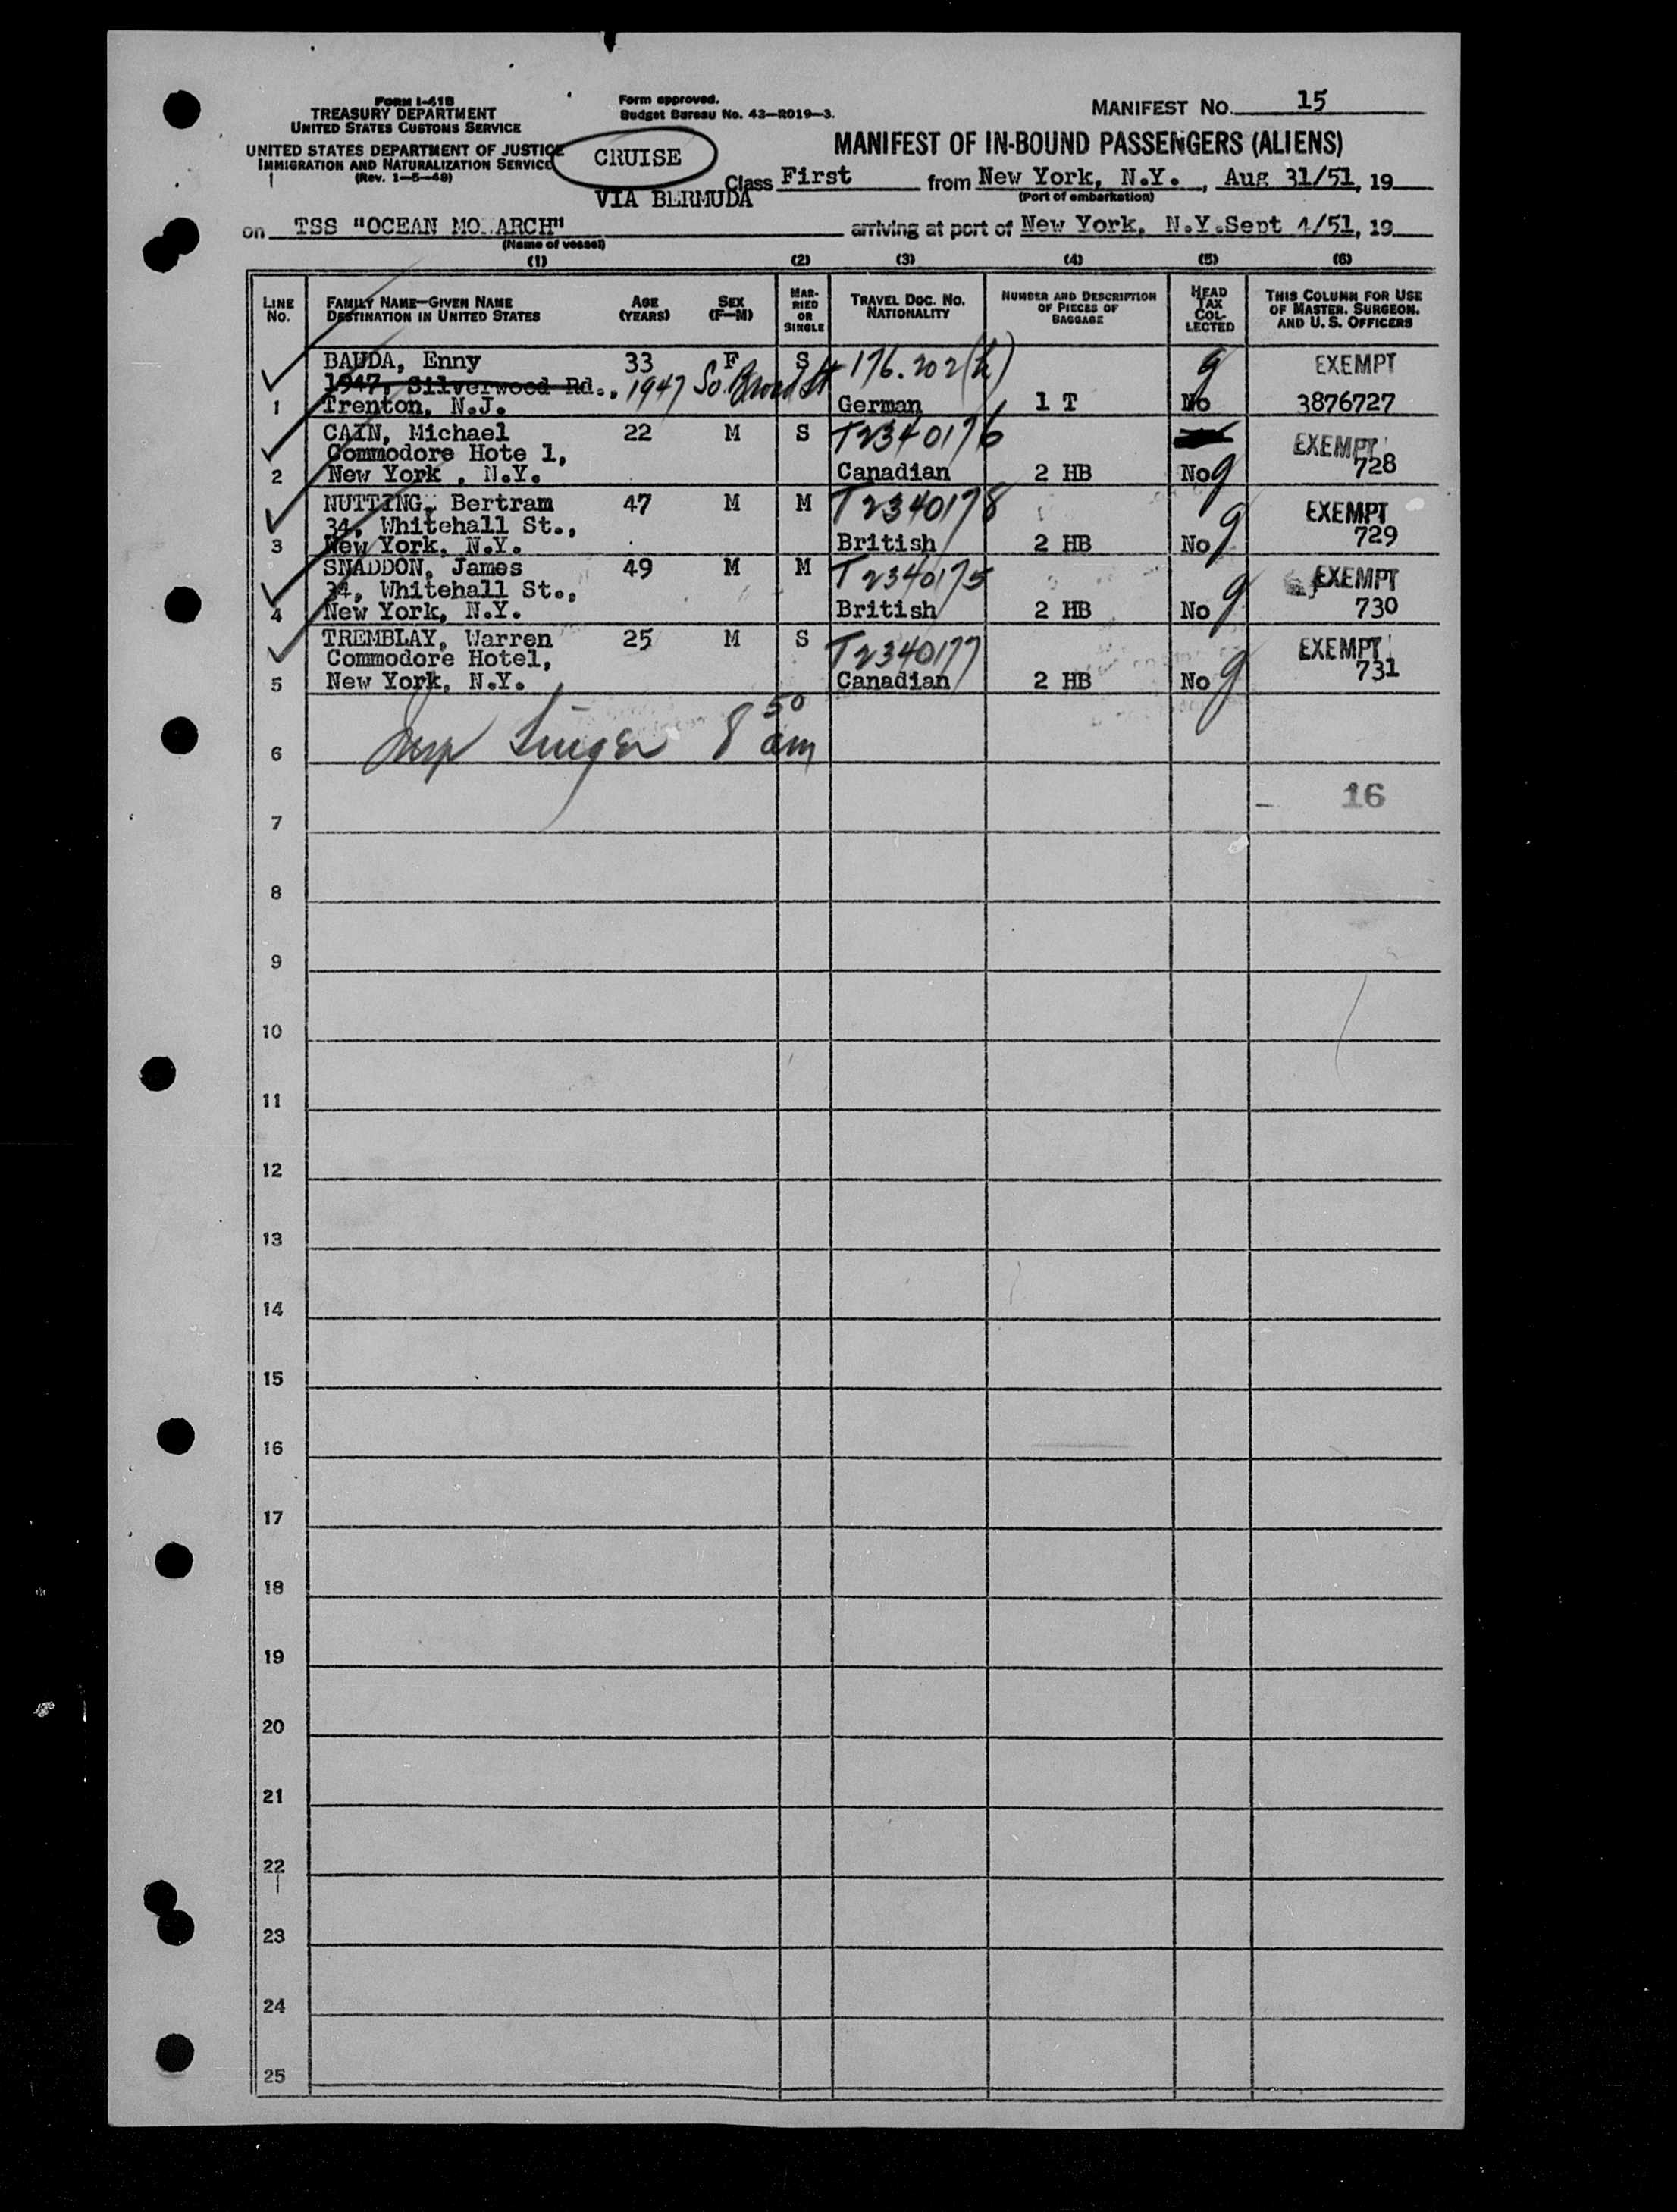 FORM I-418
TREASURY DEPARTMENT
UNITED STATES CUSTOMS SERVICE
UNITED STATES DEPARTMENT OF JUSTICE
IMMIGRATION AND NATURALIZATION SERVICE
(Rev. 1-5-49)
Form approved.
Budget Bureau No. 43-R019-3.
MANIFEST NO. 15
CRUISE
VIA BERMUDA
MANIFEST OF IN-BOUND PASSENGERS (ALIENS)
Class First from New York, N.Y., Aug 31/51, 19
(Port of embarkation)
on TSS "OCEAN MONARCH" arriving at port of New York, N.Y. Sept 4/51, 19
(Name of vessel)
(1) (2) (3) (4) (5) (6)
LINE NO. FAMILY NAME—GIVEN NAME DESTINATION IN UNITED STATES AGE (YEARS) SEX (F—M) MARRIED OR SINGLE TRAVEL DOC. NO. NATIONALITY NUMBER AND DESCRIPTION OF PIECES OF BAGGAGE HEAD TAX COLLECTED THIS COLUMN FOR USE OF MASTER, SURGEON, AND U. S. OFFICERS
BAUDA, Enny 33 F S 176.202(h) g EXEMPT
1947, Silverwood Rd., 1947 So. Broad St
1 Trenton, N.J. German 1 T No 3876727
CAIN, Michael 22 M S T2340176 EXEMPT
Commodore Hote l,
2 New York , N.Y. Canadian 2 HB No g 728
NUTTING, Bertram 47 M M T2340178 EXEMPT
34, Whitehall St.,
3 New York, N.Y. British 2 HB No g 729
SNADDON, James 49 M M T2340175 EXEMPT
34, Whitehall St.,
4 New York, N.Y. British 2 HB No g 730
TREMBLAY, Warren 25 M S T2340177 EXEMPT
Commodore Hotel,
5 New York, N.Y. Canadian 2 HB No g 731
6 Insp Singer 8 50 am
16
7
8
9
10
11
12
13
14
15
16
17
18
19
20
21
22
23
24
25